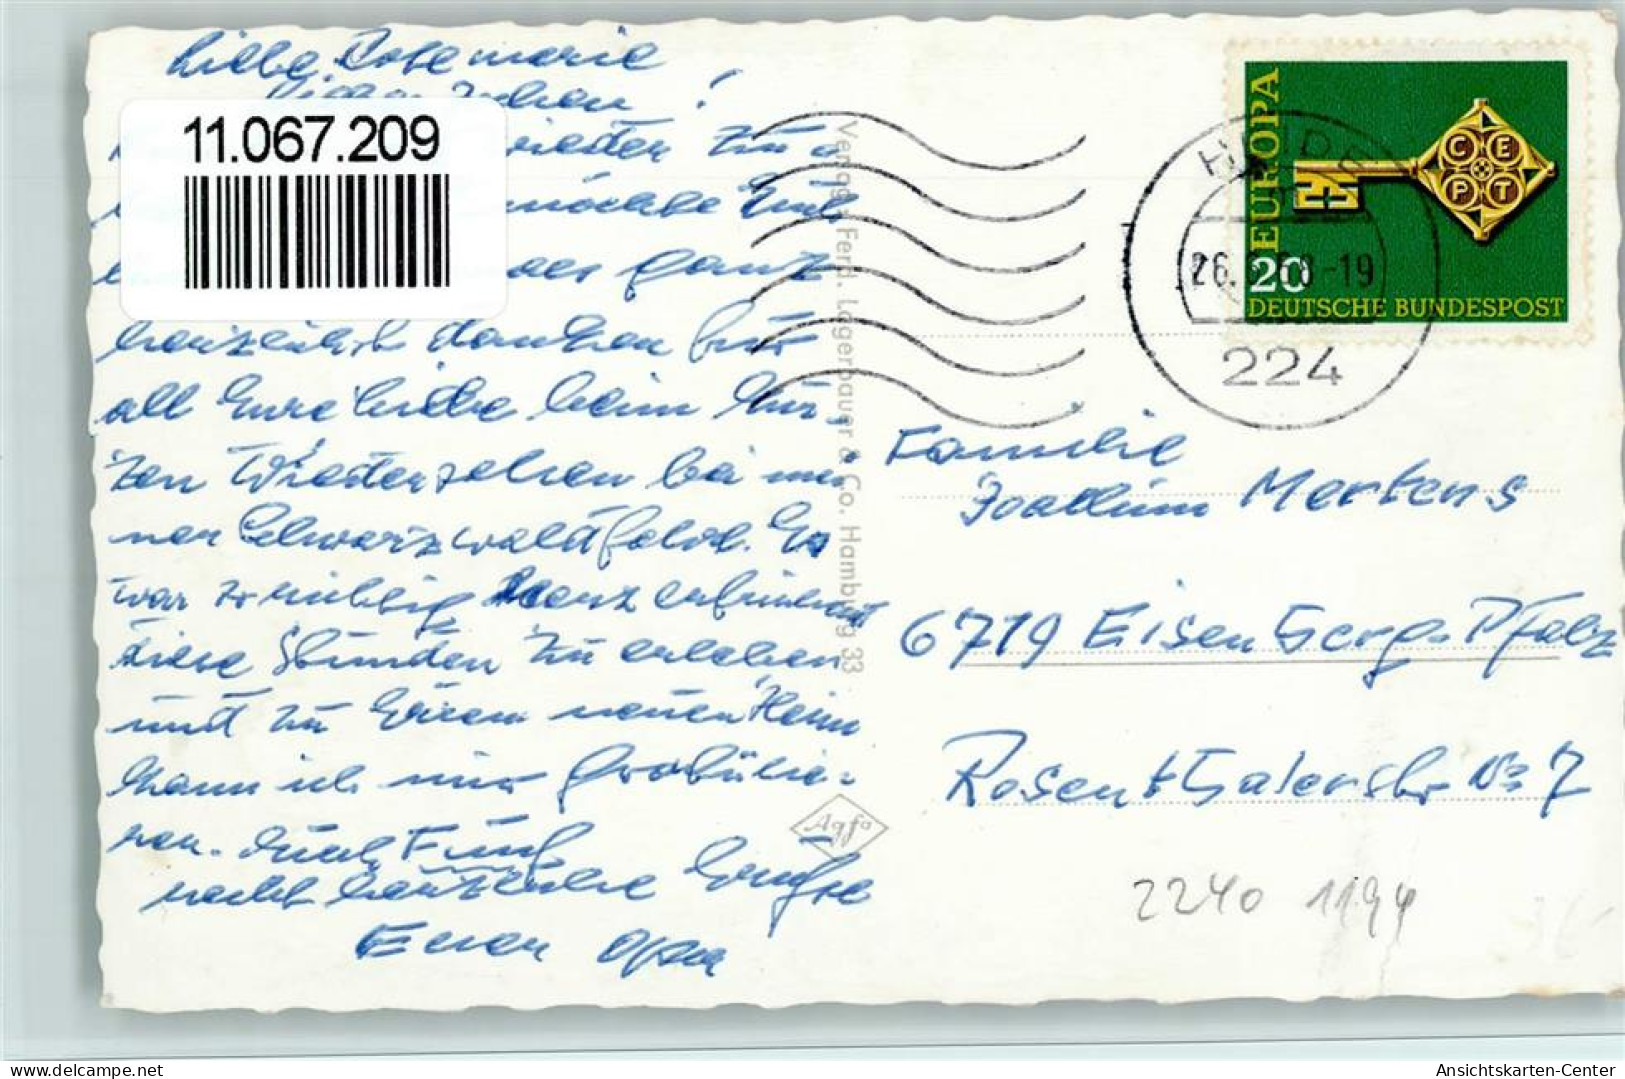 Liebe Rosemarie
Lieber Jochen !
11.067.209
wieder zu
möchte Euch
ganz
herzlich danken für
all Eure Liebe beim kur,
zen Wiedersehen bei mei
ner Schwarzwaldfahrt. Es
war so richtig herzerfrischend
diese Stunden zu erleben
und zu Eurem neuen Heim
kann ich nur gratulie-
ren.
recht herzliche Grüße
Euer Opa
Verlag Ferd. Lagerbauer & Co. Hamburg 33
Agfa
EUROPA
CEPT
20
DEUTSCHE BUNDESPOST
HEIDE
26. 68-19
224
Familie
Joachim Mertens
6719 Eisenberg-Pfalz
Rosenthalerstr No 7
2240 1194
www.delcampe.net
Ansichtskarten-Center